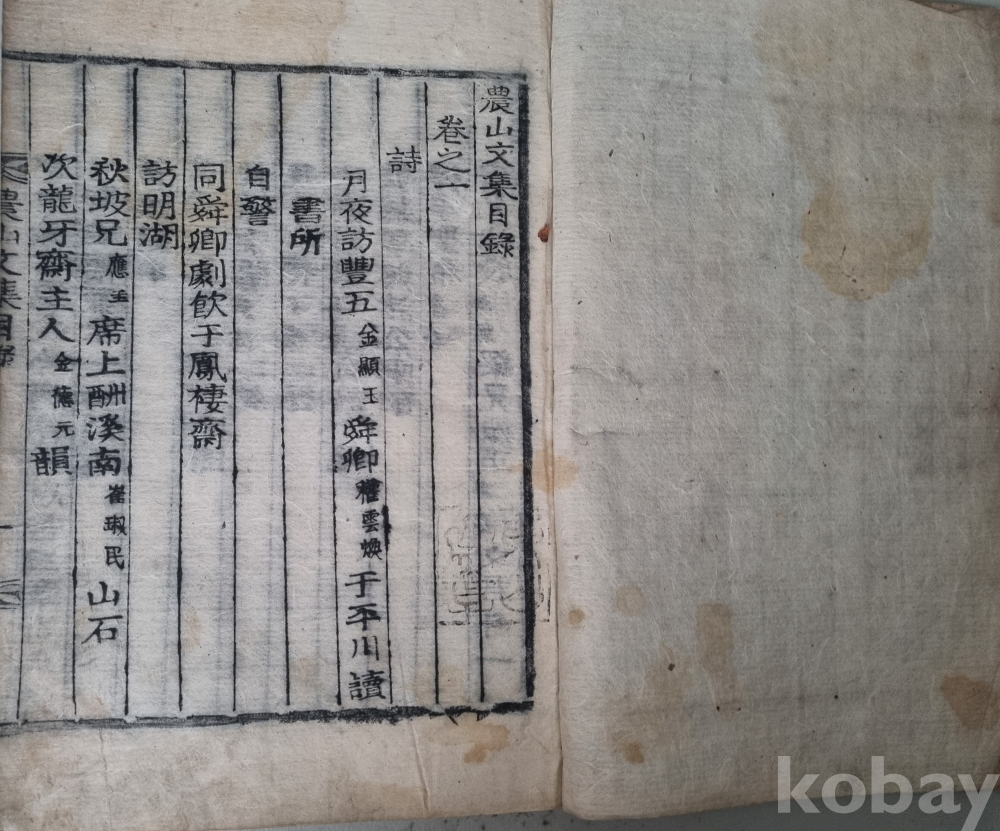 農山文集目錄
卷之一
詩
月夜訪豐五金顯玉舜卿權雲煥于平川讀
書所
自警
同舜卿劇飮于鳳棲齋
訪明湖
秋坡兄應 席上酬溪南崔琡民山石
次龍牙齋主人金德元韻
農山文集目錄
一
kobay